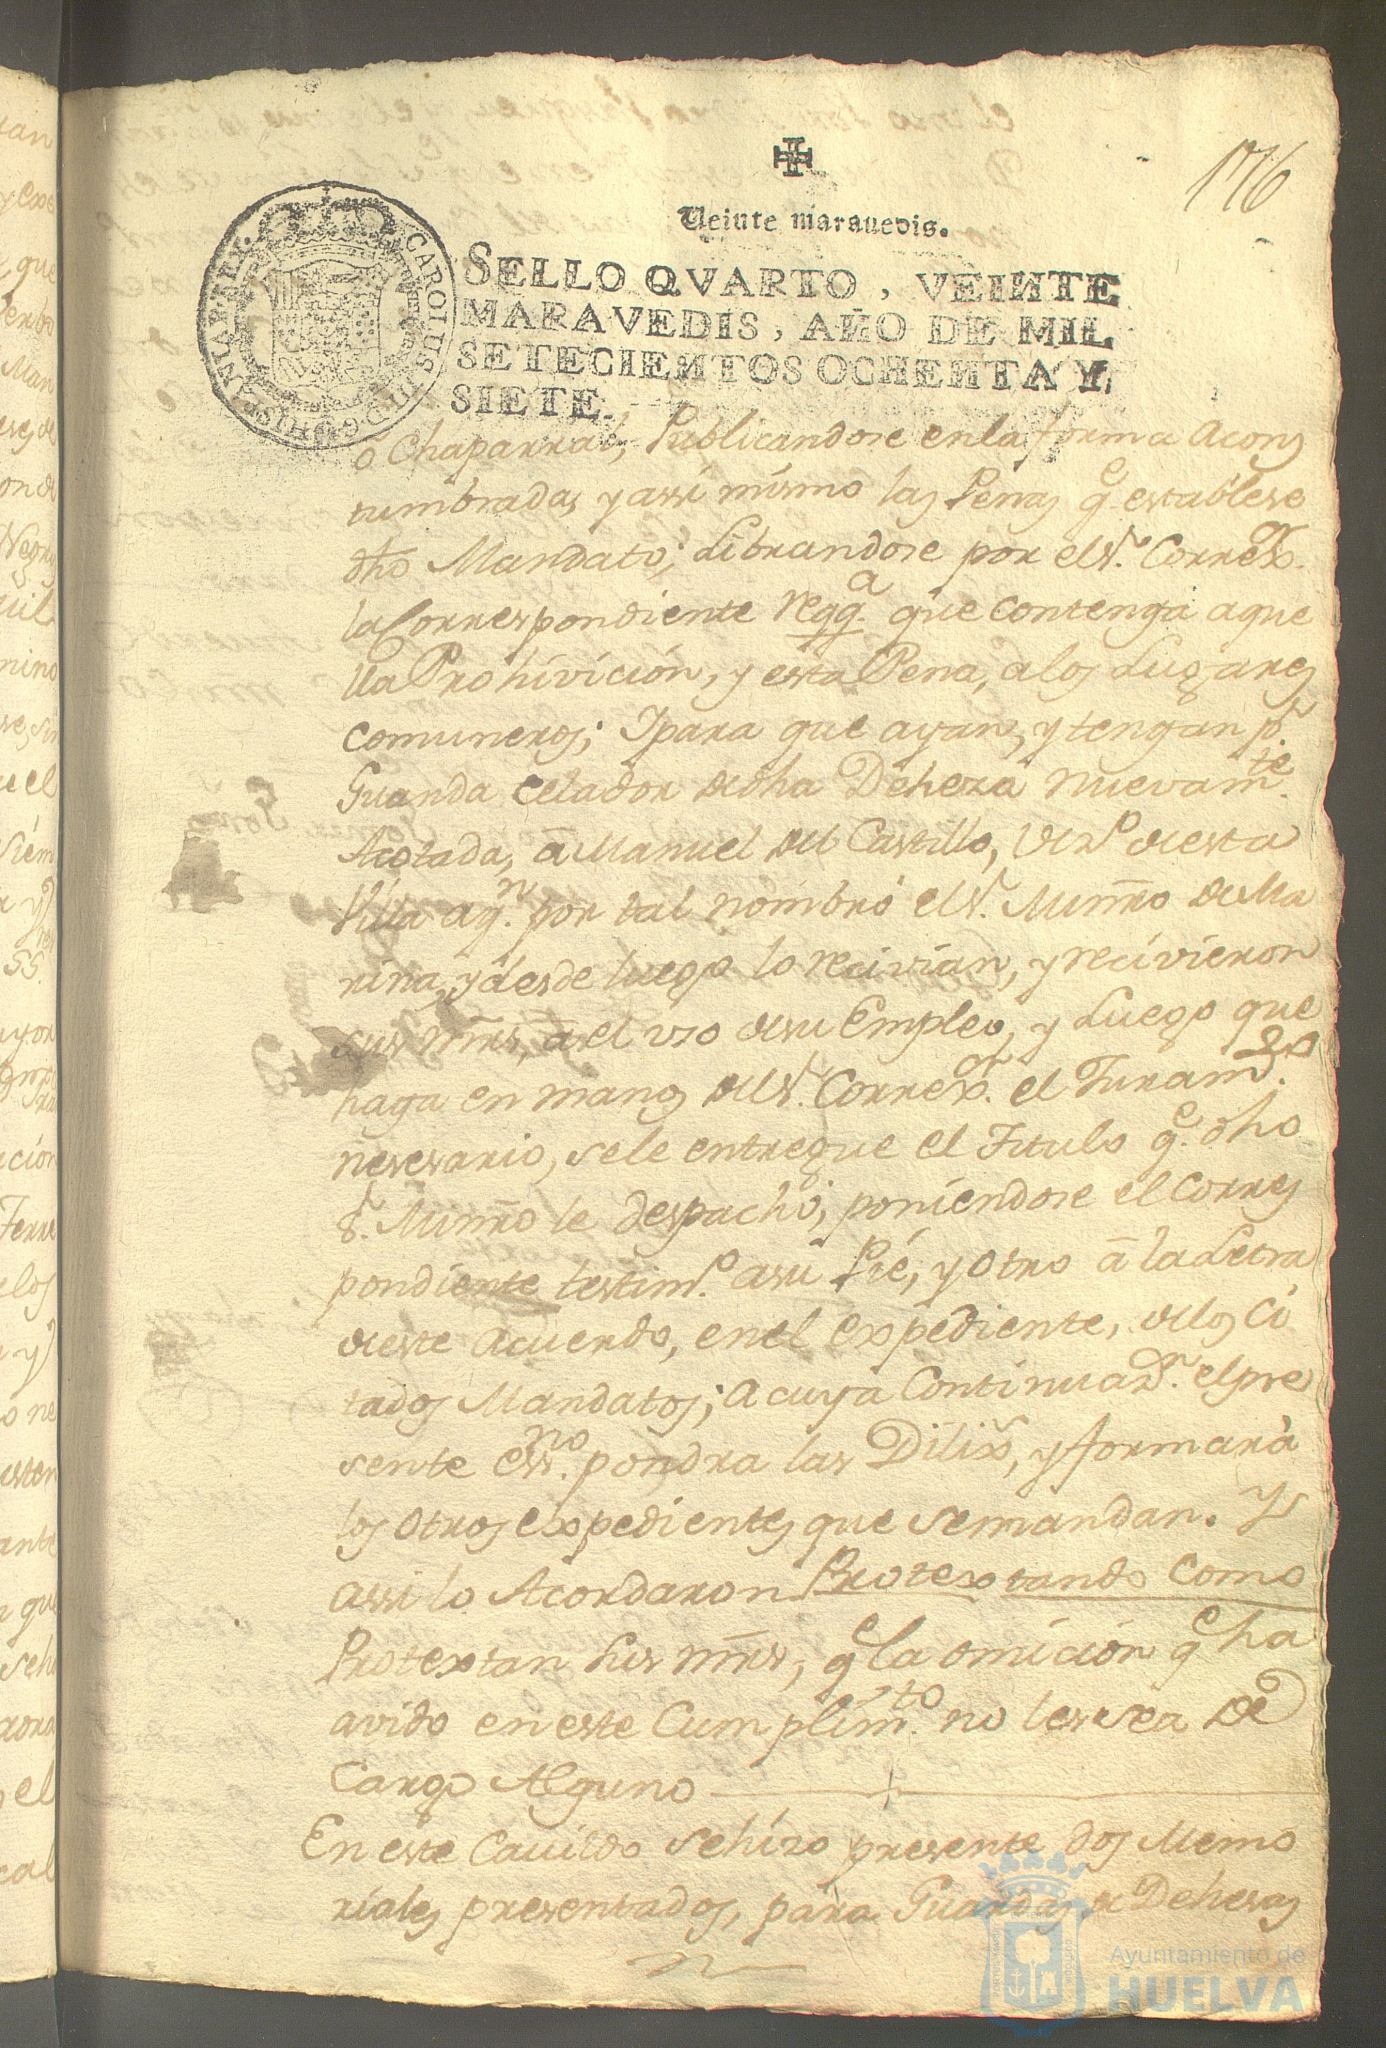 176
Veinte maravedis.
SELLO QVARTO, VEINTE
MARAVEDIS, AÑO DE MIL
SETECIENTOS OCHENTA Y
SIETE.
CAROLUS III D G HISPANIAR REX
ó Chaparral, Publicandose en la forma Acos
tumbradas y assi mismo las Penas q.e establese
dho Mandato; Librandose por el S.r Correx.or
la Correspondiente reqq.a que contenga aque
lla Prohivición, y esta Pena, a los Lugares
comuneros; Ipara que ayan, y tengan p.r
Guarda celador de dha Deheza nuevam.te
Acotada, á Manuel del Castillo, vez.o de esta
Villa aq.n por tal nombró el S.r Minrō de Ma
rina, y desde luego lo recivian, y recivieron
sus mrs, ā el uso de su Empleo, y Luego que
haga en manos del S.r Correx.or el Juram.to
nesesario, sele entregue el Titulo q.e dho
S.r Minrō le despachó; poniendose el Corres
pondiente testim.o asu Pié, y Otro ā la Letra
de este Acuerdo, en el Expediente, de los Ci
tados Mandatos; Acuya Continuaz.n el pre
sente ess.no pondra las Dilix.s, y formarà
los Otros expedientes que se mandan. Y
assi lo Acordaron Protextando como
Protextan sus mrs, q.e la omición q.e ha
avido en este Cumplim.to no les sea de
Cargo Alguno
En este Cavildo se hizo presente dos Memo
riales presentados, para Guardas de Dehesas
Ayuntamiento de
HUELVA